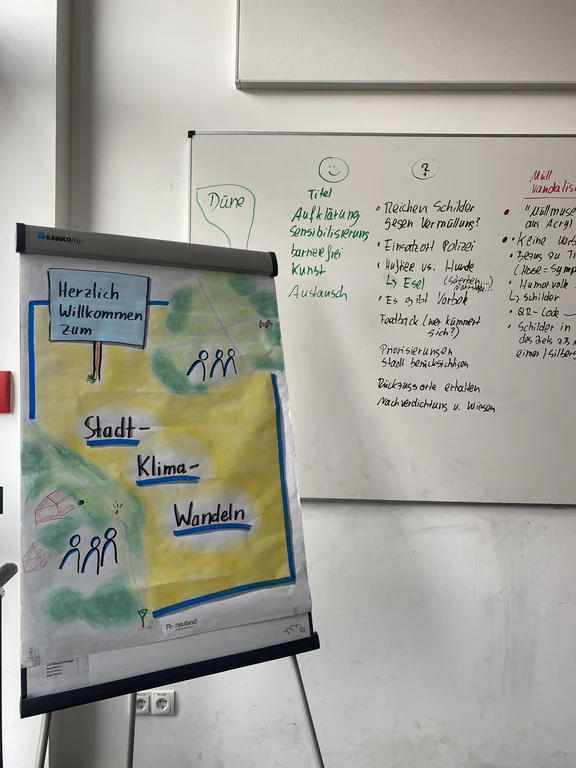 KABUCO
Herzlich
Willkommen
zum
Stadt-
Klima-
Wandeln
neuland
Düne
Titel
Aufklärung
Sensibilisierung
barrierefrei
Kunst
Austausch
?
• Reichen Schilder
gegen Vermüllung?
• Einsatzort Polizei
• Hüter vs. Hunde
↳ Esel
• Es gibt Verbot
Feedback (wer kümmert
sich?)
Priorisierungen
Stadt berücksichtigen
Rückzugsorte erhalten
Nachverdichtung u. Wiesen
Müll
Vandalis
• "Müllmuse
aus Acryl
• Keine Verb
• Bezug zu Ti
(Hase-Symp
• Humorvolle
↳ schilder
• QR-Code
• Schilder in